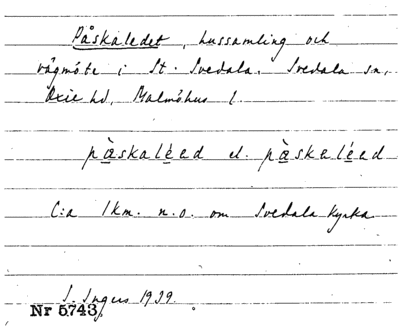 Påskaledet, hussamling och
vägmöte i St. Svedala. Svedala sn,
Oxie hd, Malmöhus l.
pàskaléed el. pàskaléed
C:a 1km. n.o. om Svedala kyrka
I. Ingers 1939.
Nr 5743